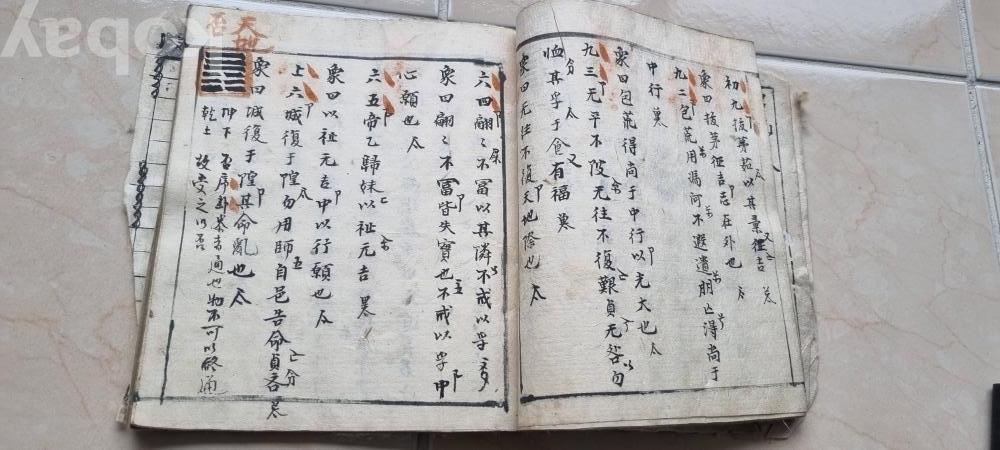 初九拔茅茹以其彙征吉
象曰拔茅征吉志在外也
九二包荒用馮河不遐遺朋亡得尚于
中行
象曰包荒得尚于中行以光大也
九三无平不陂无往不復艱貞无咎勿
恤其孚于食有福
象曰无往不復天地際也
六四翩〻不冨以其隣不戒以孚
象曰翩〻不冨皆失實也不戒以孚中
心願也
六五帝乙歸妹以祉元吉
象曰以祉元吉中以行願也
上六城復于隍勿用師自邑告命貞吝
象曰城復于隍其命亂也
天地
否
坤下 否序卦泰者通也物不可以終通
乾上 故受之以否
kobay